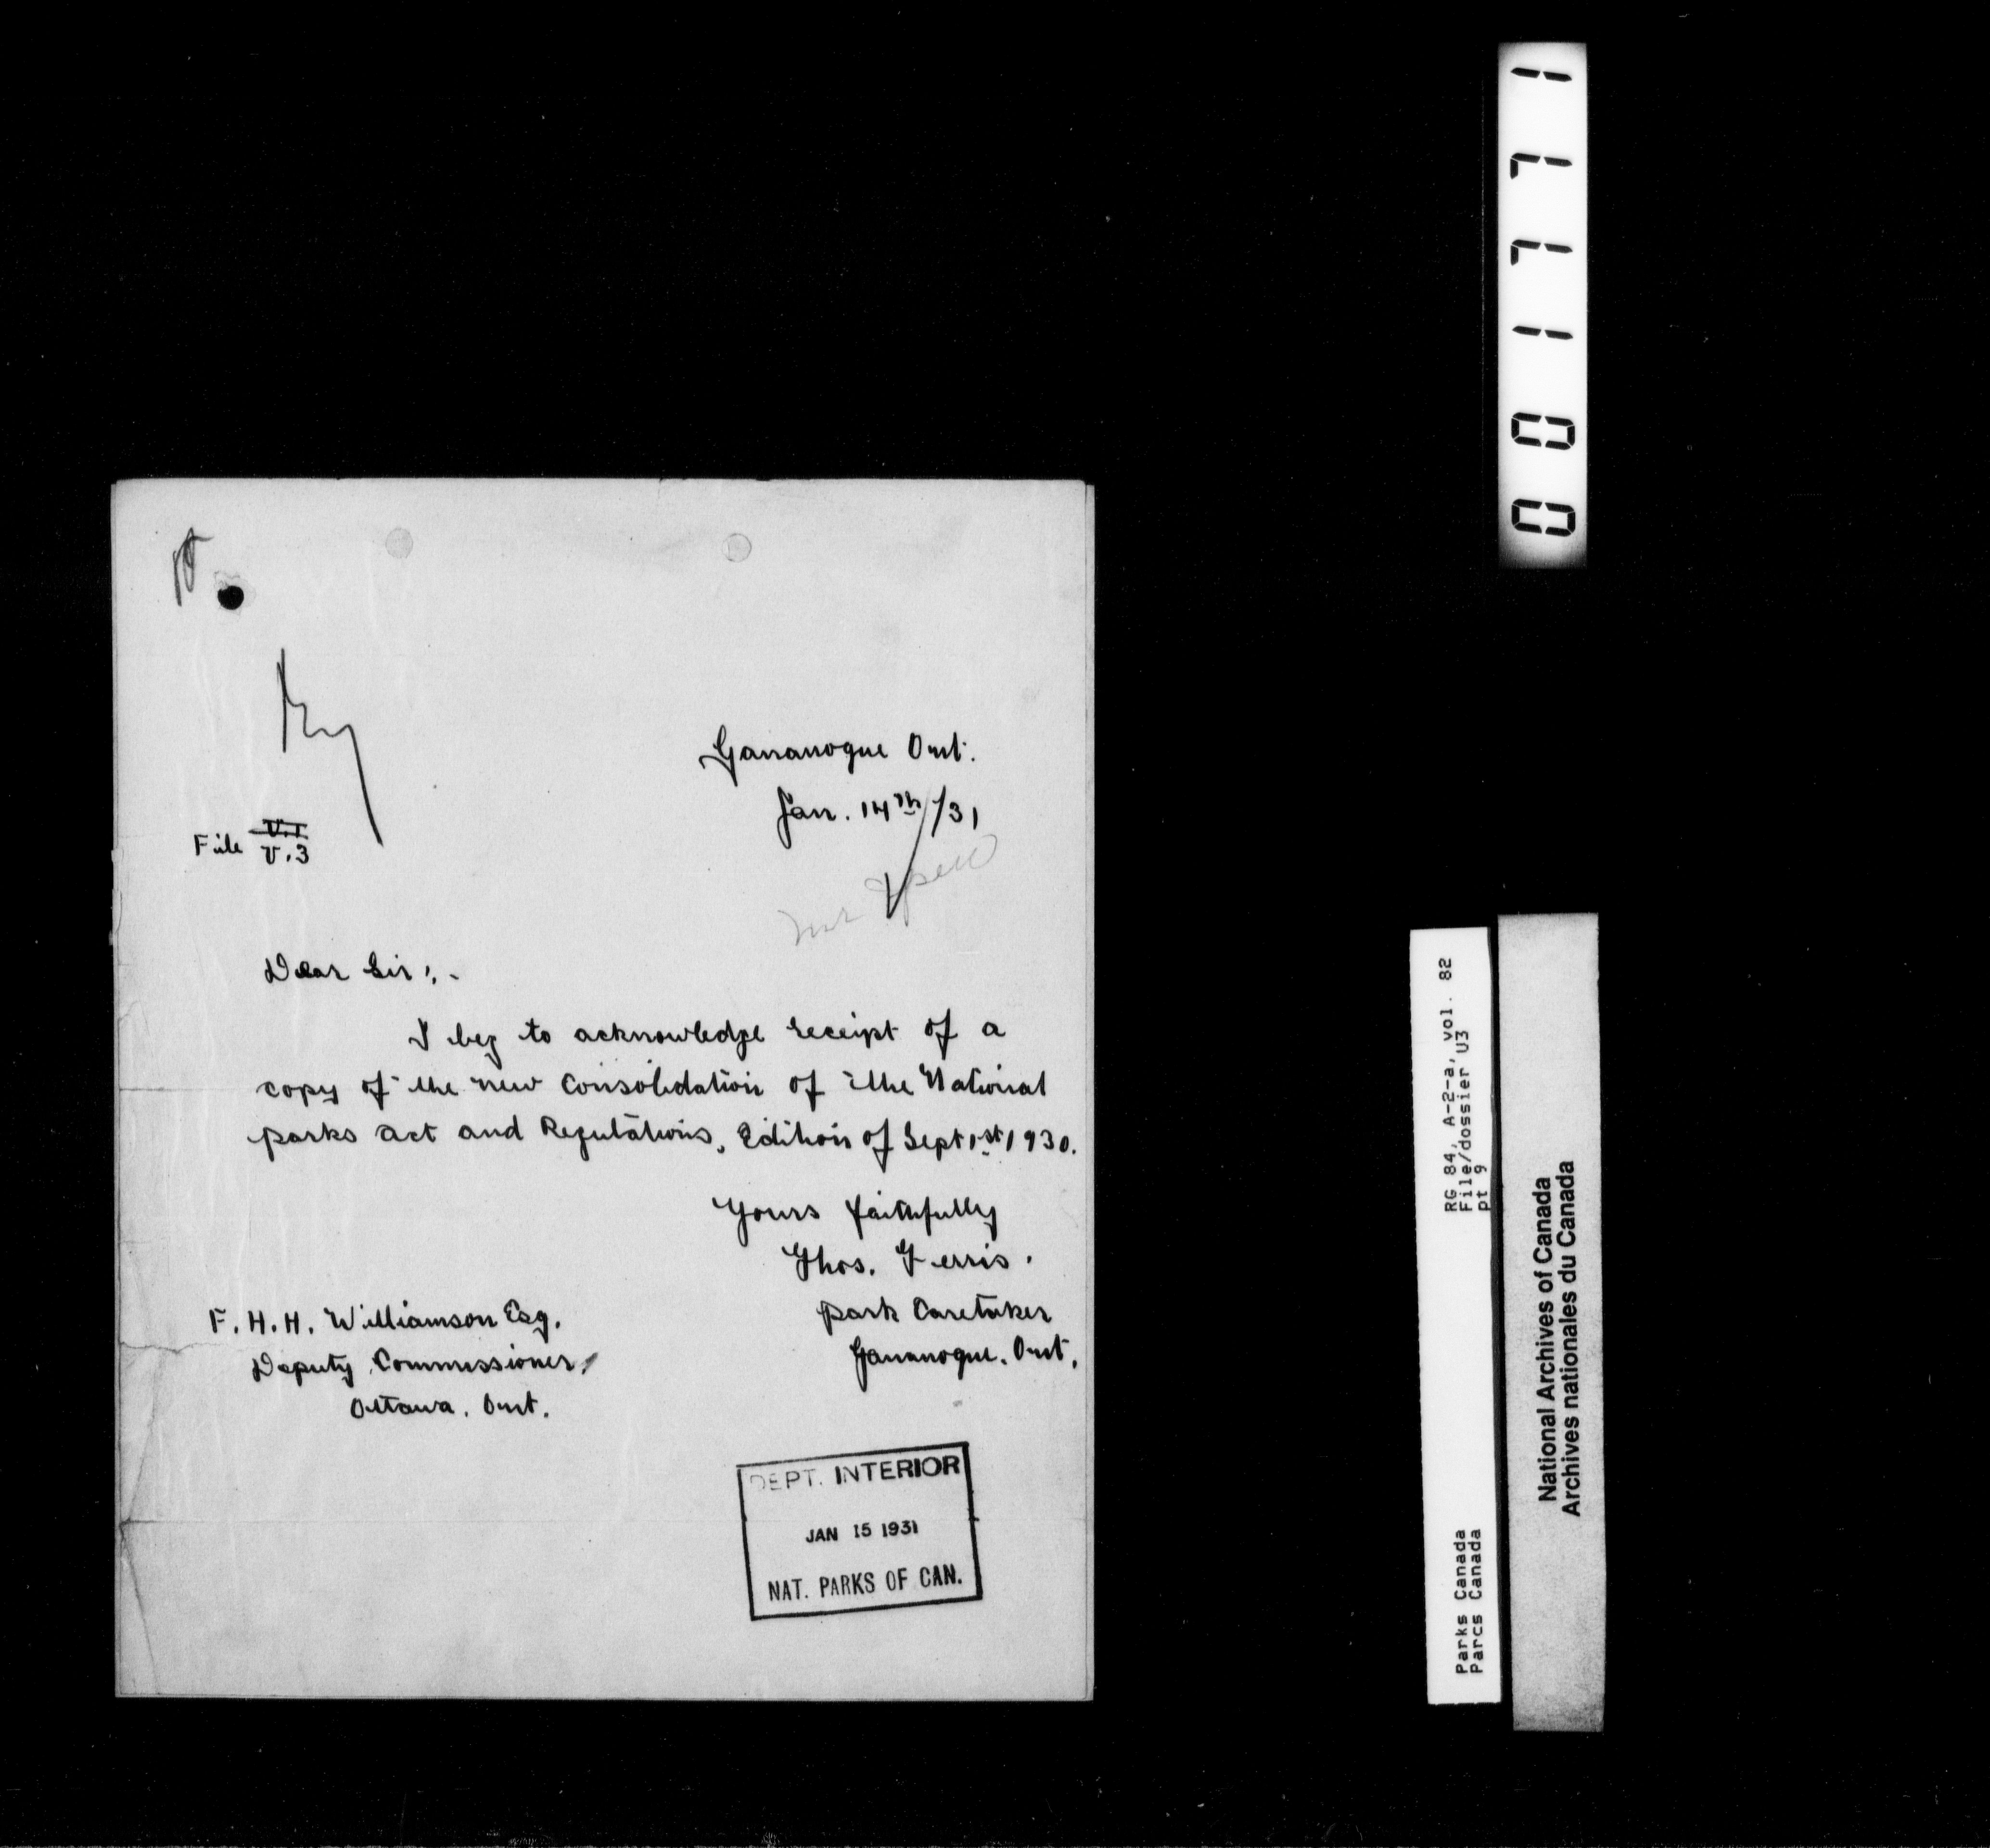 Gananoque Ont.
Jan. 14th/31
File V.1
V.3
Mr Spero
Dear Sir:-
I beg to acknowledge receipt of a
copy of the new Consolidation of the National
parks act and Regulations, Edition of Sept 1st 1930.
Yours faithfully
Thos. Ferris.
Park Caretaker
Gananoque. Ont.
F. H. H. Williamson Esq.
Deputy Commissioner,
Ottawa. Ont.
DEPT. INTERIOR
JAN 15 1931
NAT. PARKS OF CAN.
001771
RG 84, A-2-a, vol. 82
File/dossier U3
pt 9
Parks Canada
Parcs Canada
National Archives of Canada
Archives nationales du Canada